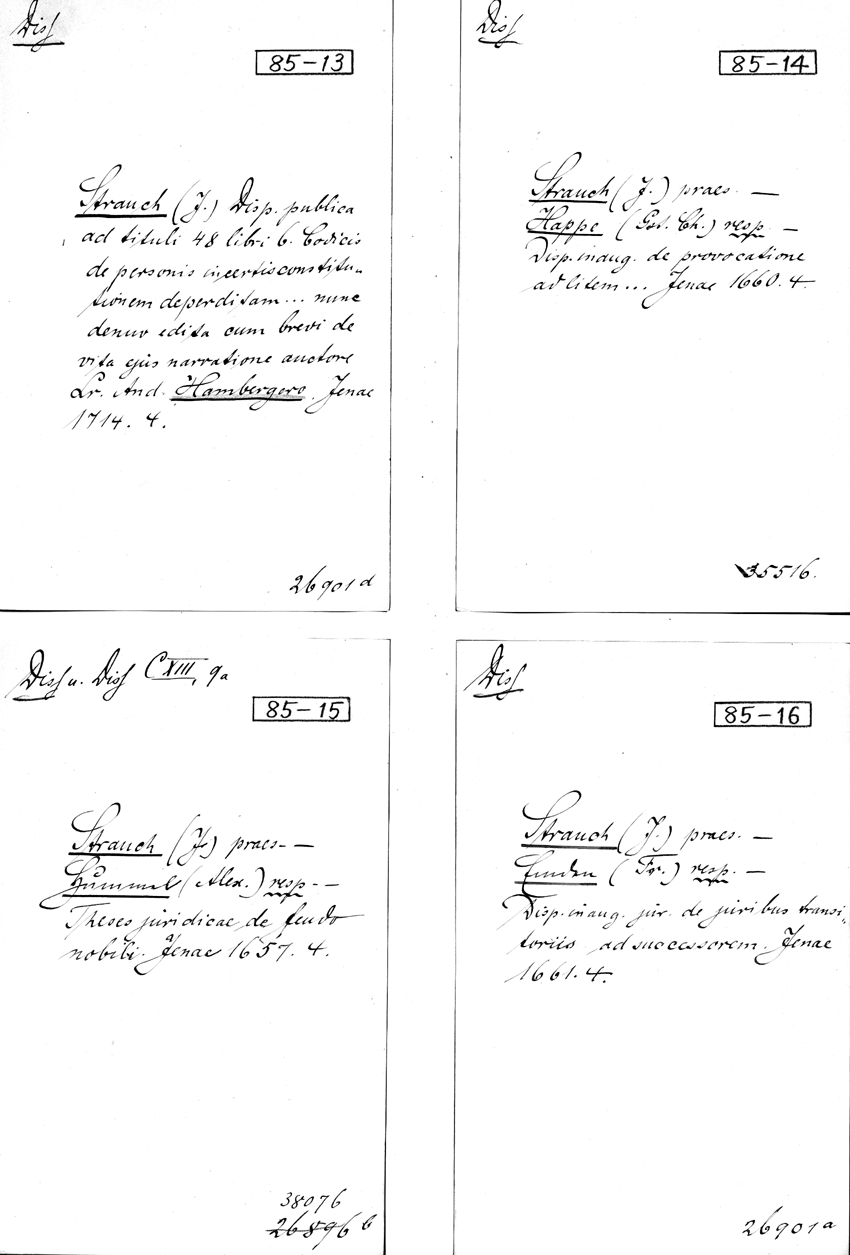 Diss
85-13
Strauch (J.) Disp. publica
ad tituli 48 libri 6. Codicis
de personis incertis constitu-
tionem deperditam... nunc
denuo edita cum brevi de
vita ejus narratione auctore
Gr. And. Hambergero. Jenae
1714. 4.
26901d
Diss
85-14
Strauch (J.) praes. —
Happe (Est. Ch.) resp. —
Disp. inaug. de provocatione
ad litem... Jenae 1660. 4.
35516.
Diss u. Diss CXIII, 9a
85-15
Strauch (J.) praes. —
Hummel (Alex.) resp. —
Theses juridicae de feudo
nobili. Jenae 1657. 4.
38076
26896 b
Diss
85-16
Strauch (J.) praes. —
Emden (Fr.) resp. —
Disp. inaug. jur. de juribus transi-
toriis ad successorem. Jenae
1661. 4.
26901a